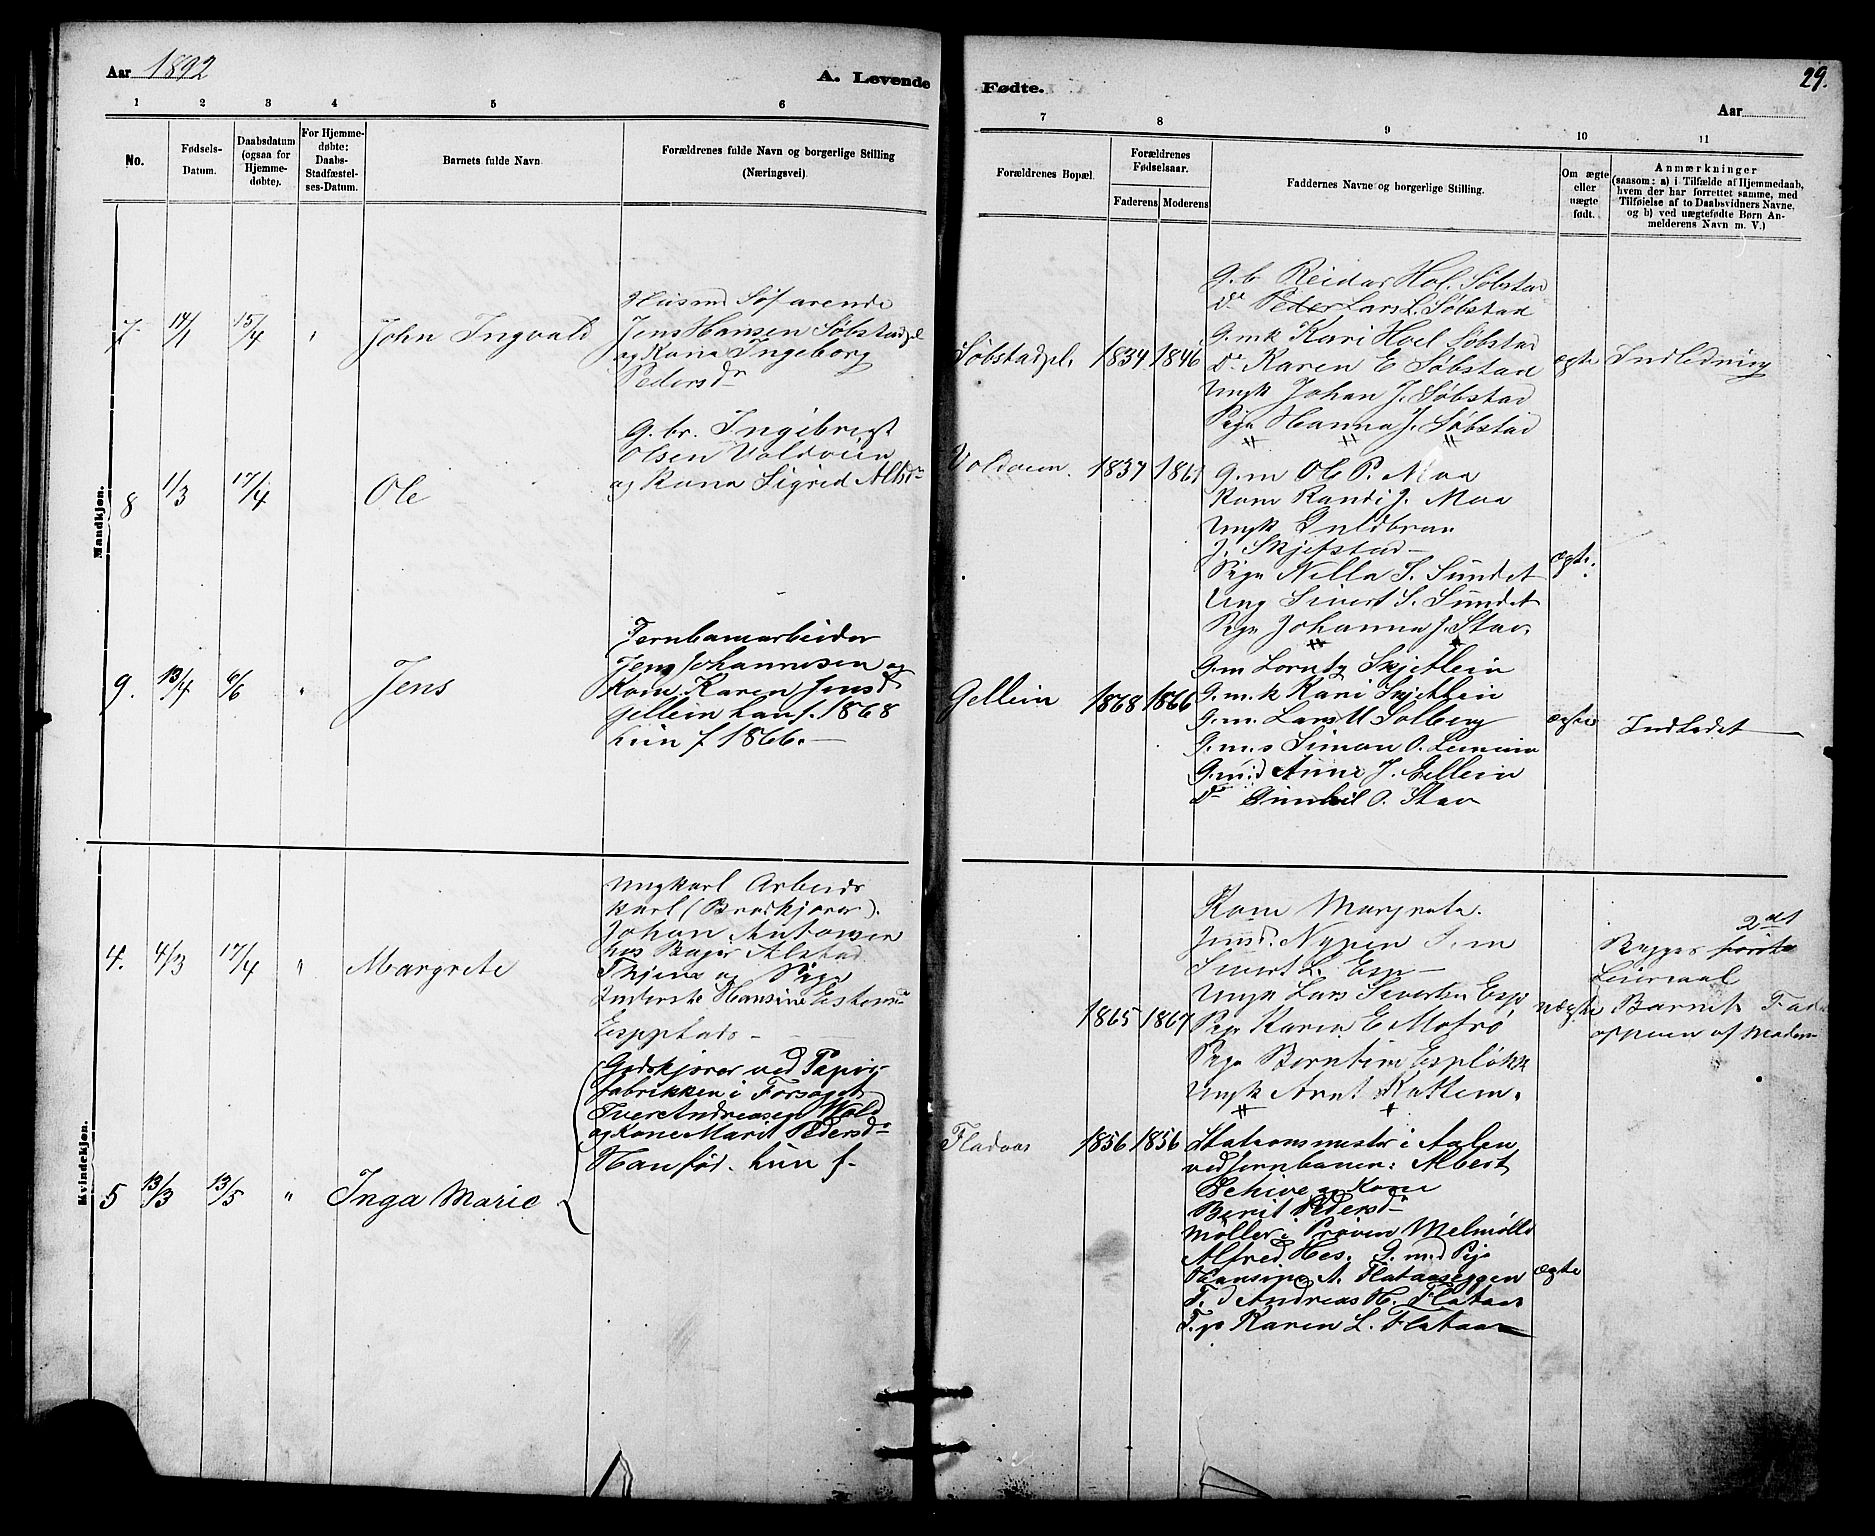 Aar 1892
A. Levende
Fødte.
29.
Aar
1 2 3 4 5 6 7 8 9 10 11
No.
Fødsels-
Datum.
Daabsdatum
(ogsaa for
Hjemme-
døbte).
For Hjemme-
døbte:
Daabs-
Stadfæstel-
ses-Datum.
Barnets fulde Navn
Forældrenes fulde Navn og borgerlige Stilling
(Næringsvei).
Forældrenes Bopæl.
Forældrenes
Fødselsaar.
Faderens Moderens
Faddernes Navne og borgerlige Stilling.
Om ægte
eller
uægte
født.
Anmærkninger
(saasom: a) i Tilfælde af Hjemmedaab,
hvem der har forrettet samme, med
Tilføielse af to Daabsvidners Navne,
og b) ved uægtefødte Børn An-
melderens Navn m. V.)
Mandkjøn.
7 14/1 15/4 " John Ingvald
Husmd Søfarende
Jens Hansen Søbstadpl
og Kone Ingeborg
Pedersdr
Søbstadpl. 1834 1846
G.b Reidar Hol. Søbstad
do Peder Lars L. Søbstad
G.mk Kari Hoel Søbstad
do Karen E Søbstad
Ungk Johan J. Søbstad
Pige Hanna J. Søbstad
ægte Indledning
8 1/3 17/4 Ole
G.br. Ingebrigt
Olsen Voldvein
og Kona Sigrid
Voldvein. 1837
G.m Ole P. Moa
Kone Randi J. Moa
Ungk Guldbran
J. Skjefstad
Pige Nella S. Sundet
Ung Sivert S. Sundet
Pige Johanna J. Stav.
ægte.
9. 13/4 6/6 " Jens
Jernbanearbeider
Jens Johannesen og
Kone Karen Jensd
Gellein han f. 1868
hun f 1866.
Gellein 1868 1866
G.m Lorntz Skjetlein
G.m.k Kari Skjetlein
G.m. Lars M Solberg
G.m.s Simon O.
G.m.d Anne J. Gellein
do Gunhil O. Stav
ægte Indledet
Kvindekjøn.
4. 4/3 17/4 " Margrete
Ungkarl Arbeids
karl (Brødkjører).
Johan Antonsen
hos Bager Alstad
og Pige
Hansine
1865 1867
Kone Margrete
Jensd. Nypen G.m
Sivert L. Esp
Ungk Lars Sivertsen Esp
Pige Karen E Mostrø
Pige Berntine
Ungk Arnt Kattem.
uægte
2det
Begges første
Leiermaal
Barnets Fader
opgiven af Moderen
5 13/3 13/5 " Inga Marie
Godskjører ved Papir
fabrikken i Forsøget
Iver Andreasen Wold
og Kone Marit Pedersdr
Han fød. hun f.
Fladaas 1856 1856
Stationsmester i Aalen
ved Jernbanen: Albert
Schive og Kone
Berit Pedersdr
Møller i Prøven Melmølle
Alfred Hes. G.m.d Pige
Hansine A. Flataaseggen
Andreas H. Flataas
Karen L. Flataas
ægte